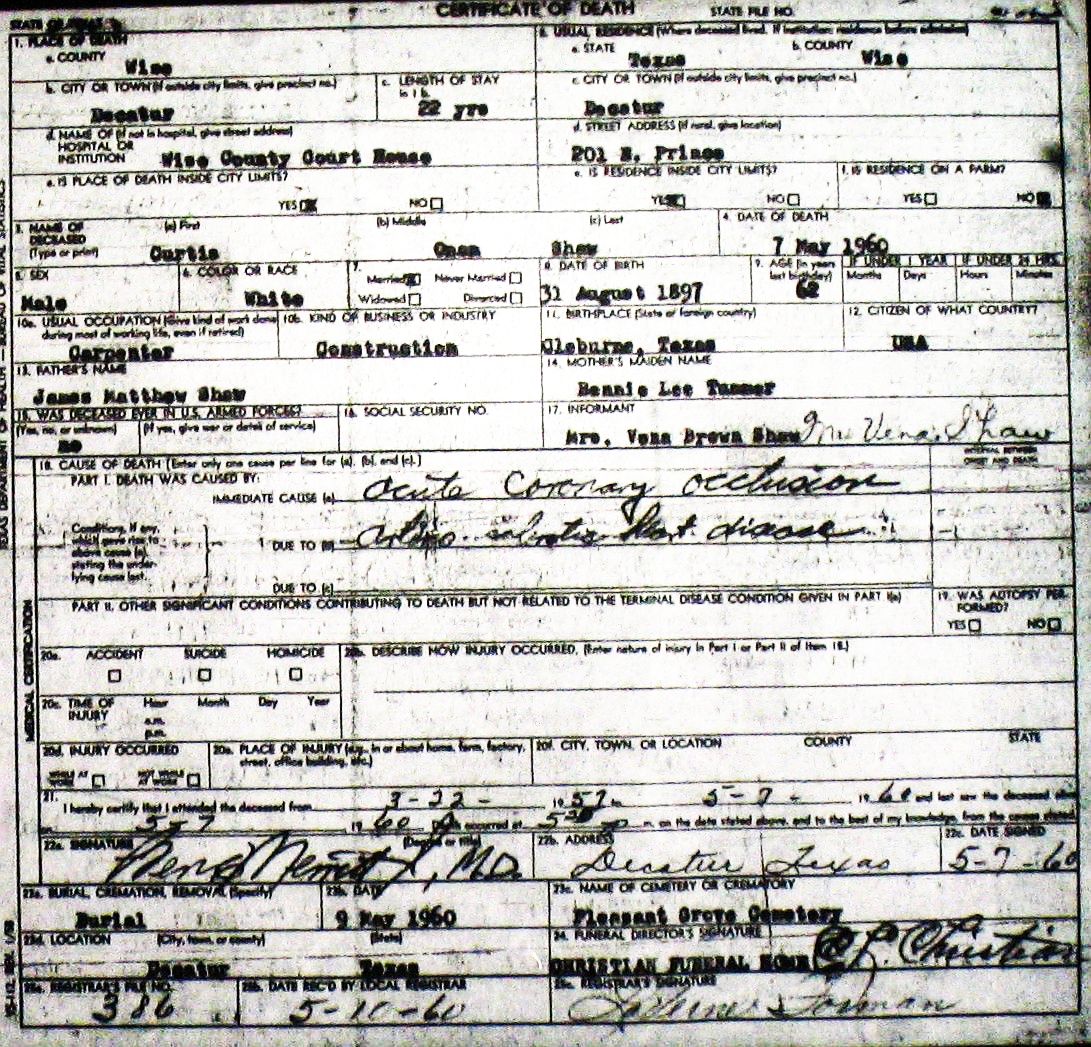 CERTIFICATE OF DEATH STATE FILE NO.
STATE OF TEXAS
1. PLACE OF DEATH
a. COUNTY
Wise
2. USUAL RESIDENCE (Where deceased lived. If institution: residence before admission)
a. STATE b. COUNTY
Texas Wise
b. CITY OR TOWN (If outside city limits, give precinct no.)
Decatur
c. LENGTH OF STAY
in 1 b.
22 yrs
c. CITY OR TOWN (If outside city limits, give precinct no.)
Decatur
d. NAME OF (If not in hospital, give street address)
HOSPITAL OR
INSTITUTION Wise County Court House
d. STREET ADDRESS (If rural, give location)
201 N. Prince
e. IS PLACE OF DEATH INSIDE CITY LIMITS?
YES NO
e. IS RESIDENCE INSIDE CITY LIMITS?
YES NO
f. IS RESIDENCE ON A FARM?
YES NO
3. NAME OF
DECEASED
(Type or print)
(a) First (b) Middle (c) Last
Curtis Shaw
4. DATE OF DEATH
7 May 1960
5. SEX
Male
6. COLOR OR RACE
White
7.
Married Never Married
Widowed Divorced
8. DATE OF BIRTH
31 August 1897
9. AGE (In years
last birthday)
62
IF UNDER 1 YEAR IF UNDER 24 HRS.
Months Days Hours Minutes
10a. USUAL OCCUPATION (Give kind of work done
during most of working life, even if retired)
Carpenter
10b. KIND OF BUSINESS OR INDUSTRY
Construction
11. BIRTHPLACE (State or foreign country)
Cleburne, Texas
12. CITIZEN OF WHAT COUNTRY?
USA
13. FATHER'S NAME
James Matthew Shaw
14. MOTHER'S MAIDEN NAME
Bennie Lee
15. WAS DECEASED EVER IN U.S. ARMED FORCES?
(Yes, no, or unknown) (If yes, give war or dates of service)
no
16. SOCIAL SECURITY NO.
17. INFORMANT
Mrs. Vena Brown Shaw Mrs Vena Shaw
18. CAUSE OF DEATH [Enter only one cause per line for (a), (b), and (c).]
INTERVAL BETWEEN
ONSET AND DEATH
PART I. DEATH WAS CAUSED BY:
IMMEDIATE CAUSE (a) acute coronary occlusion
Conditions, if any,
which gave rise to
above cause (a),
stating the under-
lying cause last.
DUE TO (b) heart disease
DUE TO (c)
PART II. OTHER SIGNIFICANT CONDITIONS CONTRIBUTING TO DEATH BUT NOT RELATED TO THE TERMINAL DISEASE CONDITION GIVEN IN PART I(a)
19. WAS AUTOPSY PER-
FORMED?
YES NO
20a. ACCIDENT SUICIDE HOMICIDE
20b. DESCRIBE HOW INJURY OCCURRED. (Enter nature of injury in Part I or Part II of Item 18.)
20c. TIME OF
INJURY
Hour Month Day Year
a.m.
p.m.
20d. INJURY OCCURRED
WHILE AT WORK NOT WHILE AT WORK
20e. PLACE OF INJURY (e.g., in or about home, farm, factory,
street, office building, etc.)
20f. CITY, TOWN, OR LOCATION COUNTY STATE
21.
I hereby certify that I attended the deceased from 3-22- 1957 to 5-7- 1960 and last saw the deceased alive
on 5-7 1960 Death occurred at m. on the date stated above, and to the best of my knowledge, from the causes stated.
22a. SIGNATURE (Degree or title)
M.D.
22b. ADDRESS
Decatur Texas
22c. DATE SIGNED
5-7-60
23a. BURIAL, CREMATION, REMOVAL (Specify)
Burial
23b. DATE
9 May 1960
23c. NAME OF CEMETERY OR CREMATORY
Pleasant Grove Cemetery
23d. LOCATION (City, town, or county) (State)
Decatur Texas
24. FUNERAL DIRECTOR'S SIGNATURE
CHRISTIAN FUNERAL HOME Christian
25a. REGISTRAR'S FILE NO.
386
25b. DATE REC'D BY LOCAL REGISTRAR
5-10-60
25c. REGISTRAR'S SIGNATURE
MEDICAL CERTIFICATION
TEXAS DEPARTMENT OF HEALTH — BUREAU OF VITAL STATISTICS